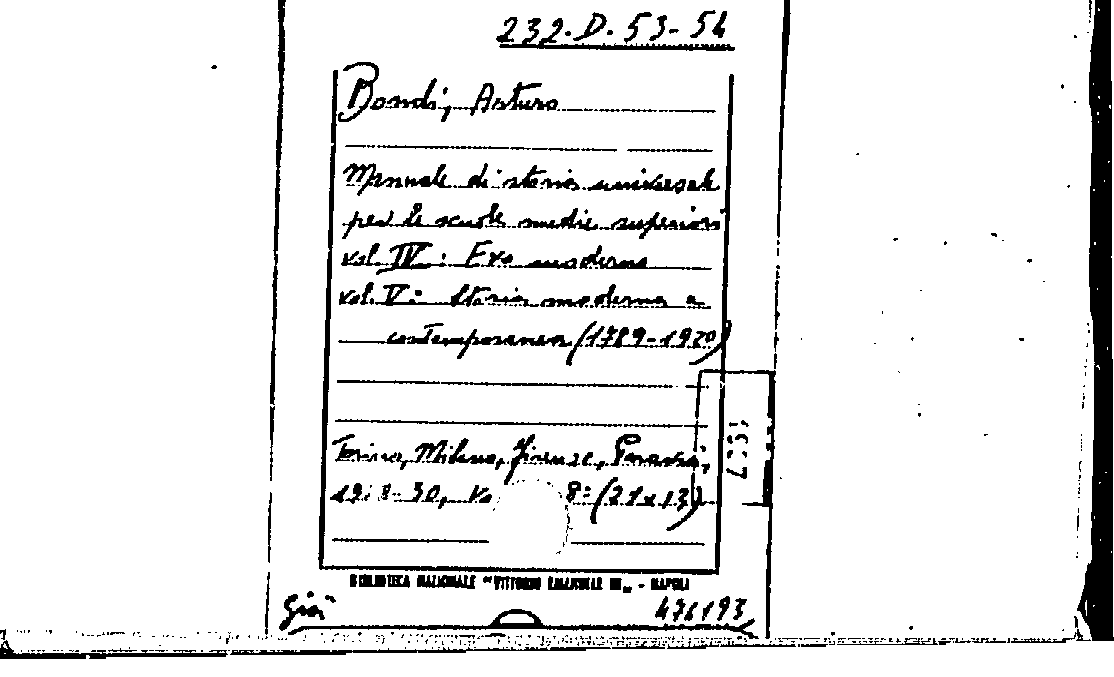 232.D.53-54
Bondi, Arturo
Manuale di storia universale
per le scuole medie superiori
vol. IV: Evo moderno
vol. V: Storia moderna e
contemporanea (1789-1920)
Torino, Milano, Firenze, Paravia,
8° (21x13)
BIBLIOTECA NAZIONALE "VITTORIO EMANUELE III" - NAPOLI
Già
476193